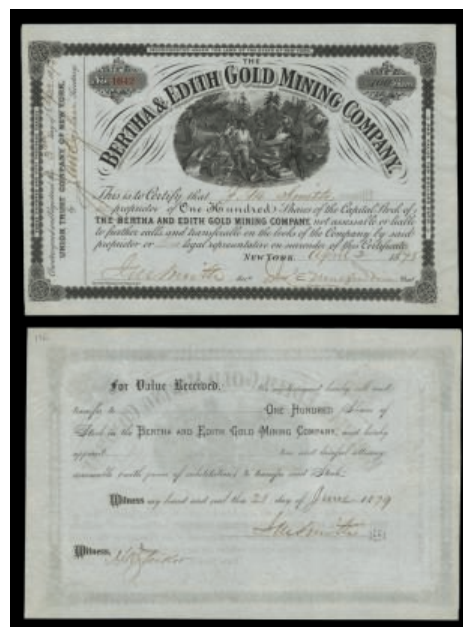 THE
BERTHA & EDITH GOLD MINING COMPANY.
No 1642
100 Shares
UNION TRUST COMPANY OF NEW YORK,
This is to Certify that J M Smith is
proprietor of One Hundred Shares of the Capital Stock of
THE BERTHA AND EDITH GOLD MINING COMPANY, not assessable or liable
to further calls and transferable on the books of the Company by said
proprietor or legal representative on surrender of this Certificate.
NEW YORK April 3 1878
For Value Received, the undersigned hereby sell and
transfer to ONE HUNDRED Shares of
Stock in the BERTHA AND EDITH GOLD MINING COMPANY, and hereby
appoint true and lawful attorney
irrevocable (with power of substitution) to transfer said Stock.
Witness my hand and seal this 23 day of June 1879
Witness,